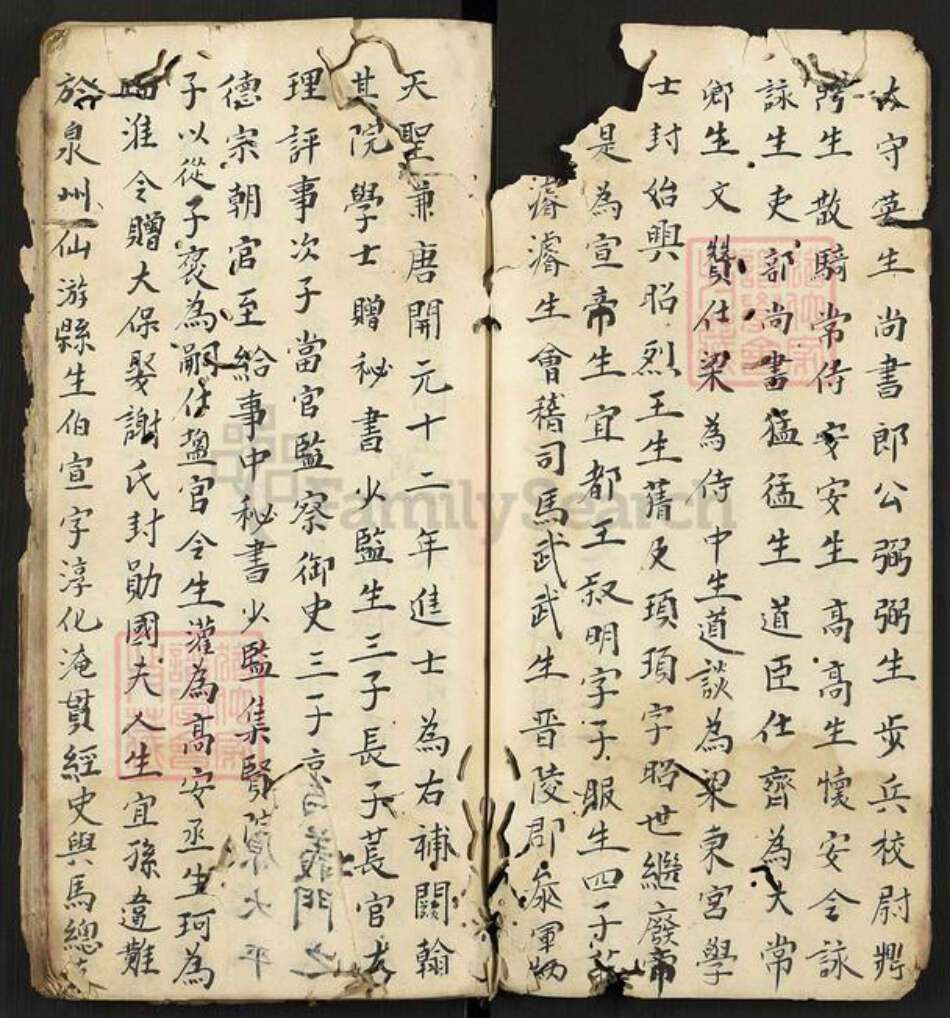 太守英生尚書郎公弼弼生步兵校尉鼎
生散騎常侍安安生高高生懷安令詠
詠生吏部尚書猛猛生道臣仕齊為太常
卿生文贊仕梁為侍中生道談為梁東宮學
士封始興昭烈王生蒨及頊頊字昭世繼廢帝
是為宣帝生宜都王叔明字子服生四子
濬濬生會稽司馬武武生晋陵郡參軍
天聖兼唐開元十二年進士為右補闕翰
其院學士贈秘書少監生三子長子萇官大
理評事次子當官監察御史三子京
德宗朝官至給事中秘書少監集賢院
子以從子褒為嗣仕盩官令生灌為高安丞生珂為
臨淮令贈大保娶謝氏封勛國夫人生宜孫違難
於泉州仙游縣生伯宣字淳化淹貫經史與馬總
FamilySearch